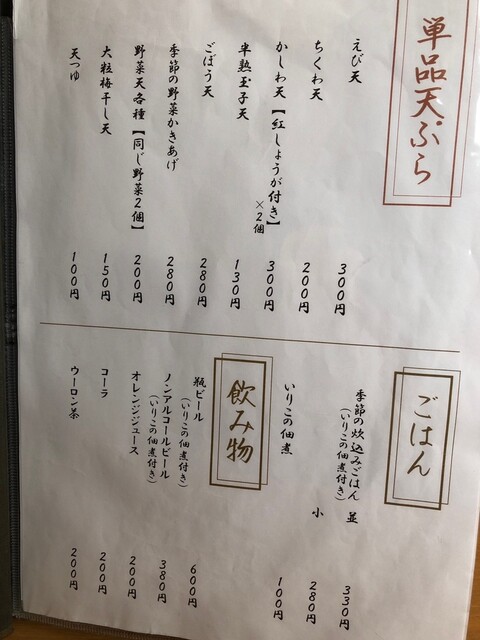 単品天ぷら
えび天 300円
ちくわ天 200円
かしわ天【紅しょうが付き】×2個 300円
半熟玉子天 130円
ごぼう天 280円
季節の野菜かきあげ 280円
野菜天各種【同じ野菜2個】 200円
大粒梅干し天 150円
天つゆ 100円
ごはん
季節の炊込みごはん 並 330円
(いりこの佃煮付き)
小 280円
いりこの佃煮 100円
飲み物
瓶ビール 600円
(いりこの佃煮付き)
ノンアルコールビール 380円
(いりこの佃煮付き)
オレンジジュース 200円
コーラ 200円
ウーロン茶 200円